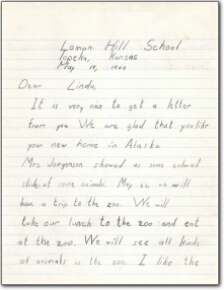 Lompn Hill School
Topeka, Kansas
May 19, 1960
Dear Linda,
It is very nice to get a letter
from you We are glad that you like
your new home in Alaska
Mrs Jorgenson showed us some colored
slides of some animals. May 22, we will
have a trip to the zoo. We will
take our lunch to the zoo and eat
at the zoo. We will see all kinds
of animals in the zoo. I like the